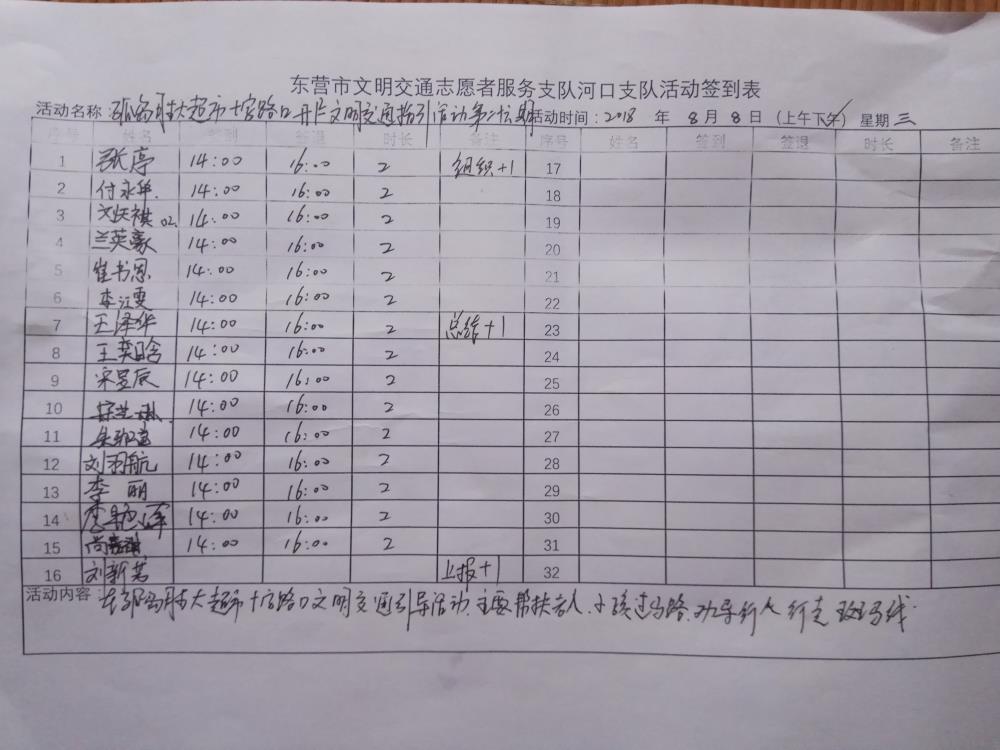 东营市文明交通志愿者服务支队河口支队活动签到表
活动名称：孤岛胜大超市十字路口开片文明交通指引活动第 期 活动时间：2018 年 8 月 8 日 （上午下午） 星期三
序号 姓名 签到 签退 时长 备注 序号 姓名 签到 签退 时长 备注
1 张亭 14:00 16:00 2 组织+1 17
2 付永华 14:00 16:00 2 18
3 祺 14:00 16:00 2 19
4 兰英豪 14:00 16:00 2 20
5 崔书恩 14:00 16:00 2 21
6 李江雯 14:00 16:00 2 22
7 王泽华 14:00 16:00 2 总结+1 23
8 王奕晗 14:00 16:00 2 24
9 宋昱辰 14:00 16:00 2 25
10 14:00 16:00 2 26
11 14:00 16:00 2 27
12 刘羽航 14:00 16:00 2 28
13 李丽 14:00 16:00 2 29
14 14:00 16:00 2 30
15 尚 14:00 16:00 2 31
16 刘新苦 上报+1 32
活动内容：在孤岛胜大超市十字路口文明交通引导活动.主要帮扶老人、小孩过马路、劝导行人行走斑马线.